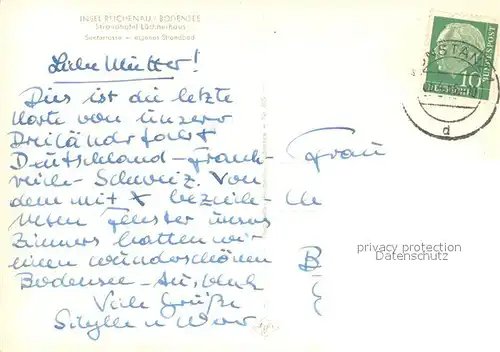 INSEL REICHENAU / BODENSEE
Strandhotel Löchnerhaus
Seeterrasse — eigenes Strandbad
Liebe Mutter!
Dies ist die letzte
Karte von unserer
Dreiländerfahrt
Deutschland-Frank-
reich-Schweiz. Von
dem mit X bezeich-
neten Fenster unseres
Zimmers hatten wir
einen wunderschönen
Bodensee-Ausblick
Viele Grüße
Sibylle u
Frau
KONSTANZ
d
10
DEUTSCHE BUNDESPOST
privacy protection
Datenschutz